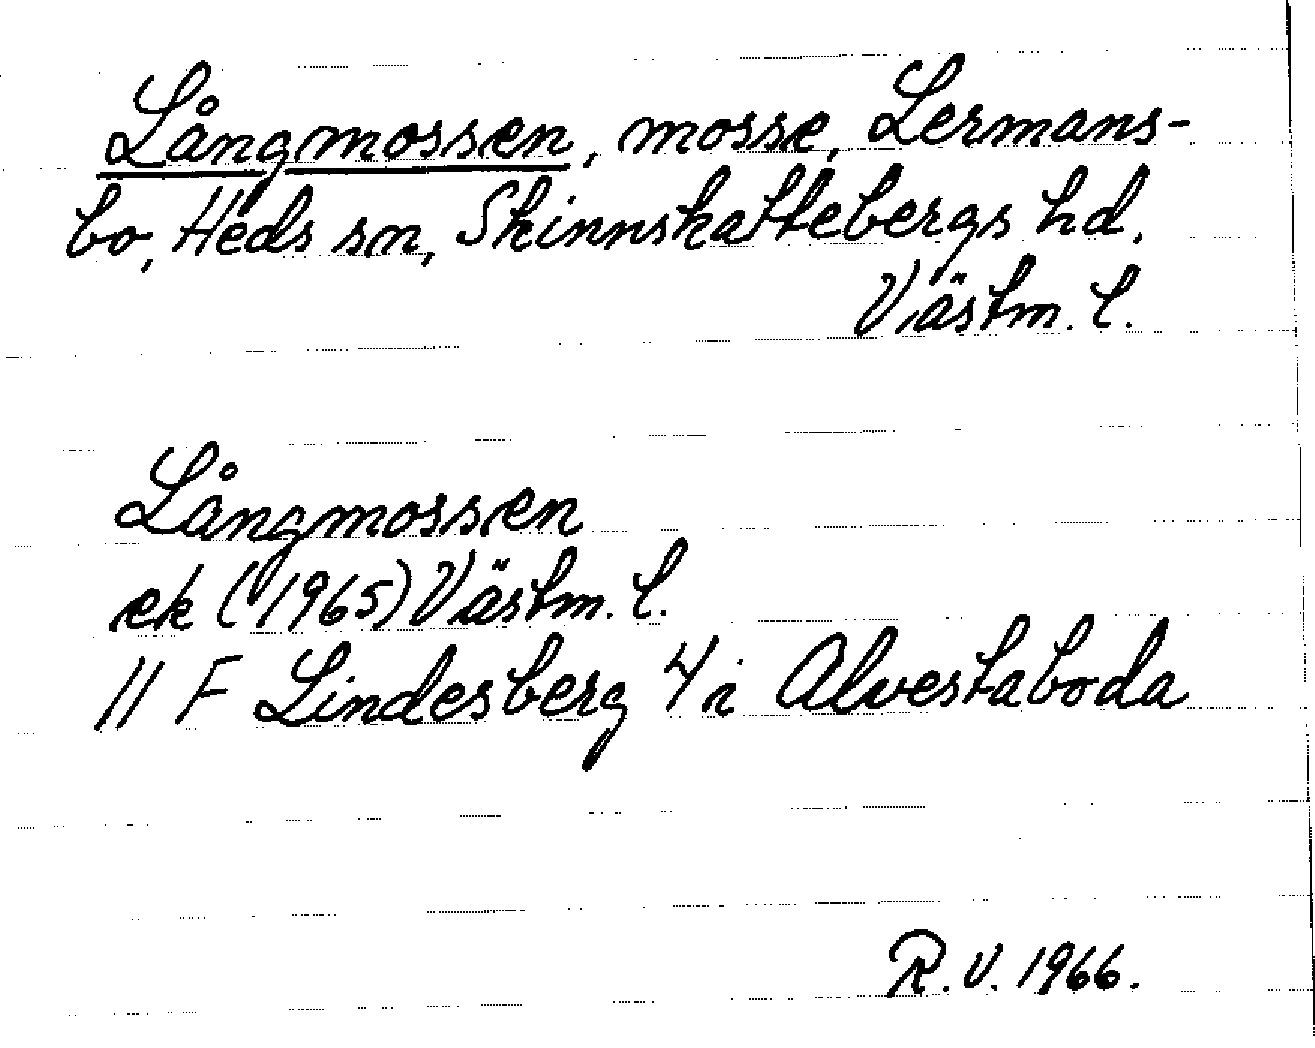 Långmossen, mosse, Lermans-
bo, Heds sn, Skinnskattebergs hd,
Västm. l.
Långmossen
ek (1965) Västm. l.
11 F Lindesberg 4 i Alvestaboda
R.V. 1966.